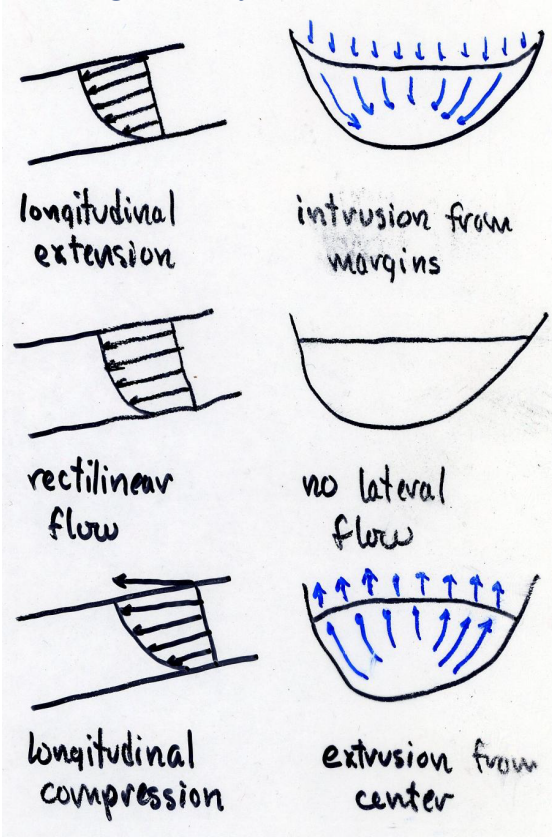 longitudinal
extension
intrusion from
margins
rectilinear
flow
no lateral
flow
longitudinal
compression
extrusion from
center